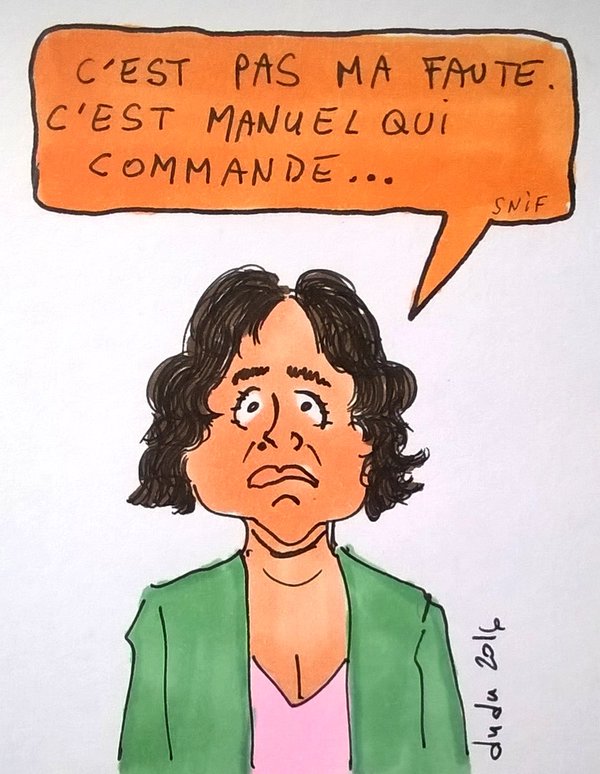 C'EST PAS MA FAUTE.
C'EST MANUEL QUI
COMMANDE...
SNIF
dudu 2016